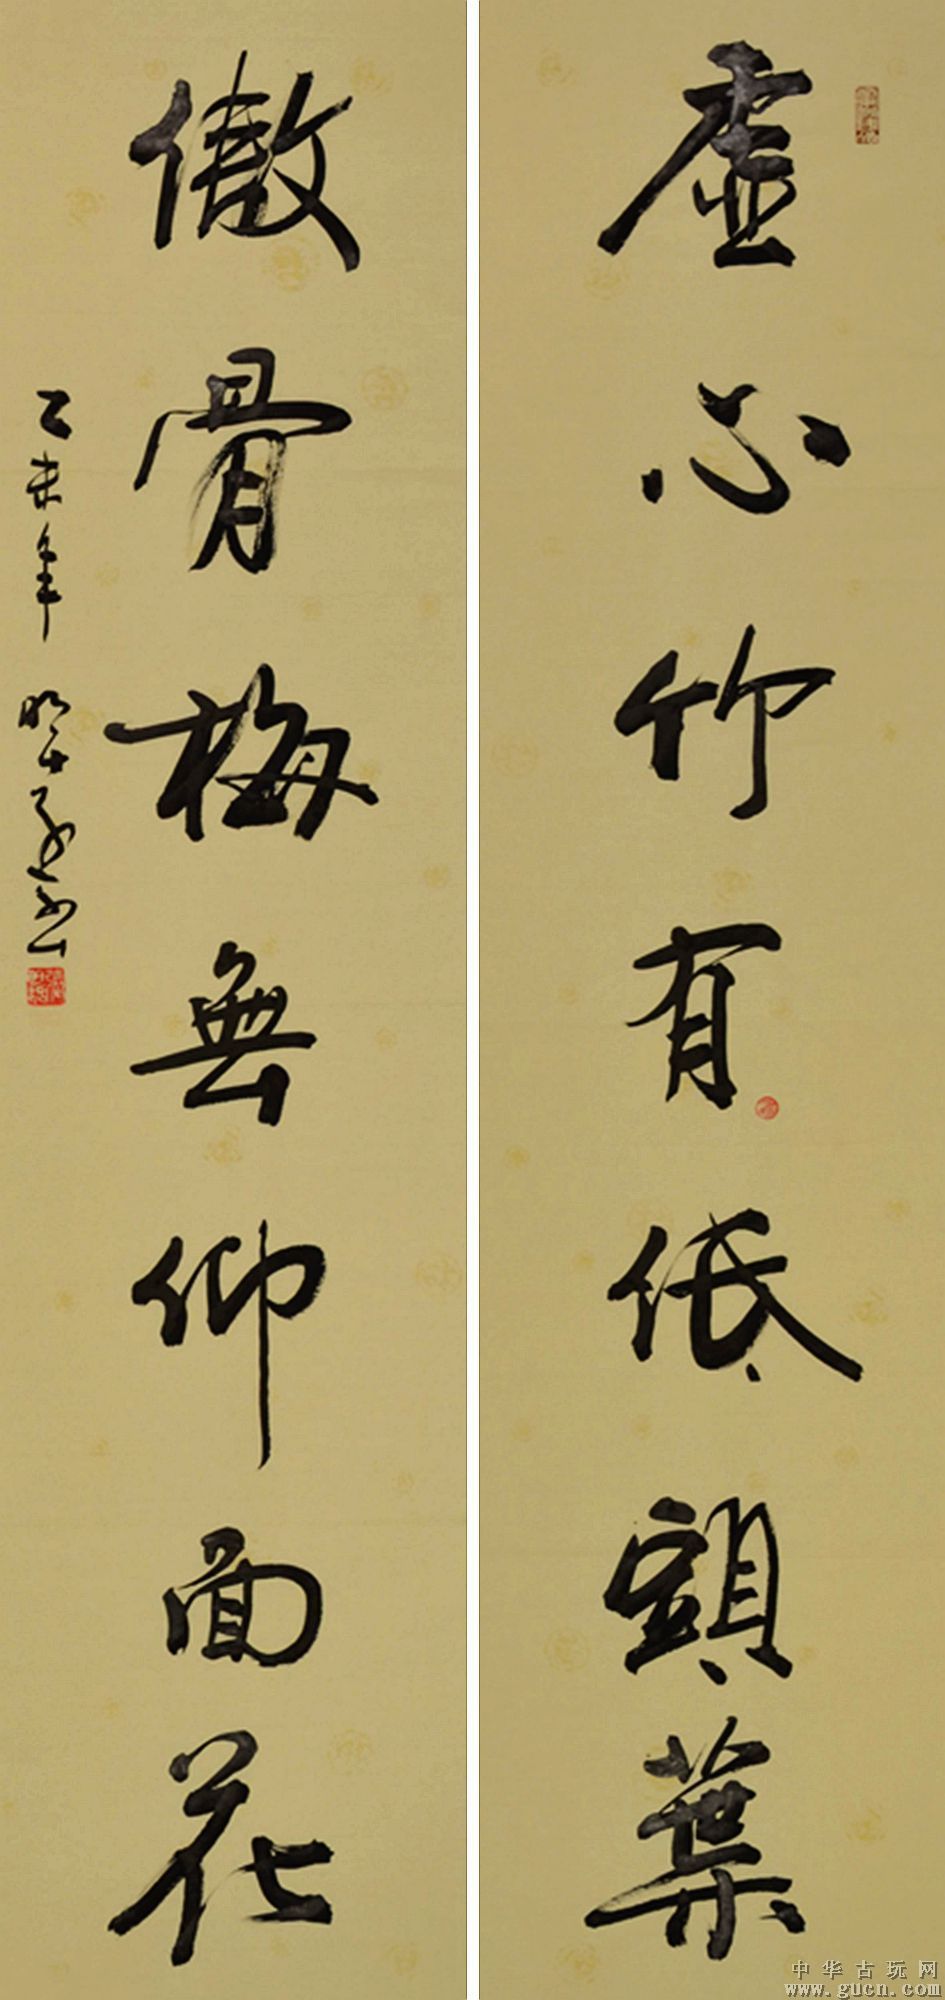 虛心竹有低頭葉
傲骨梅無仰面花
乙未年
中华古玩网
www.gucn.com